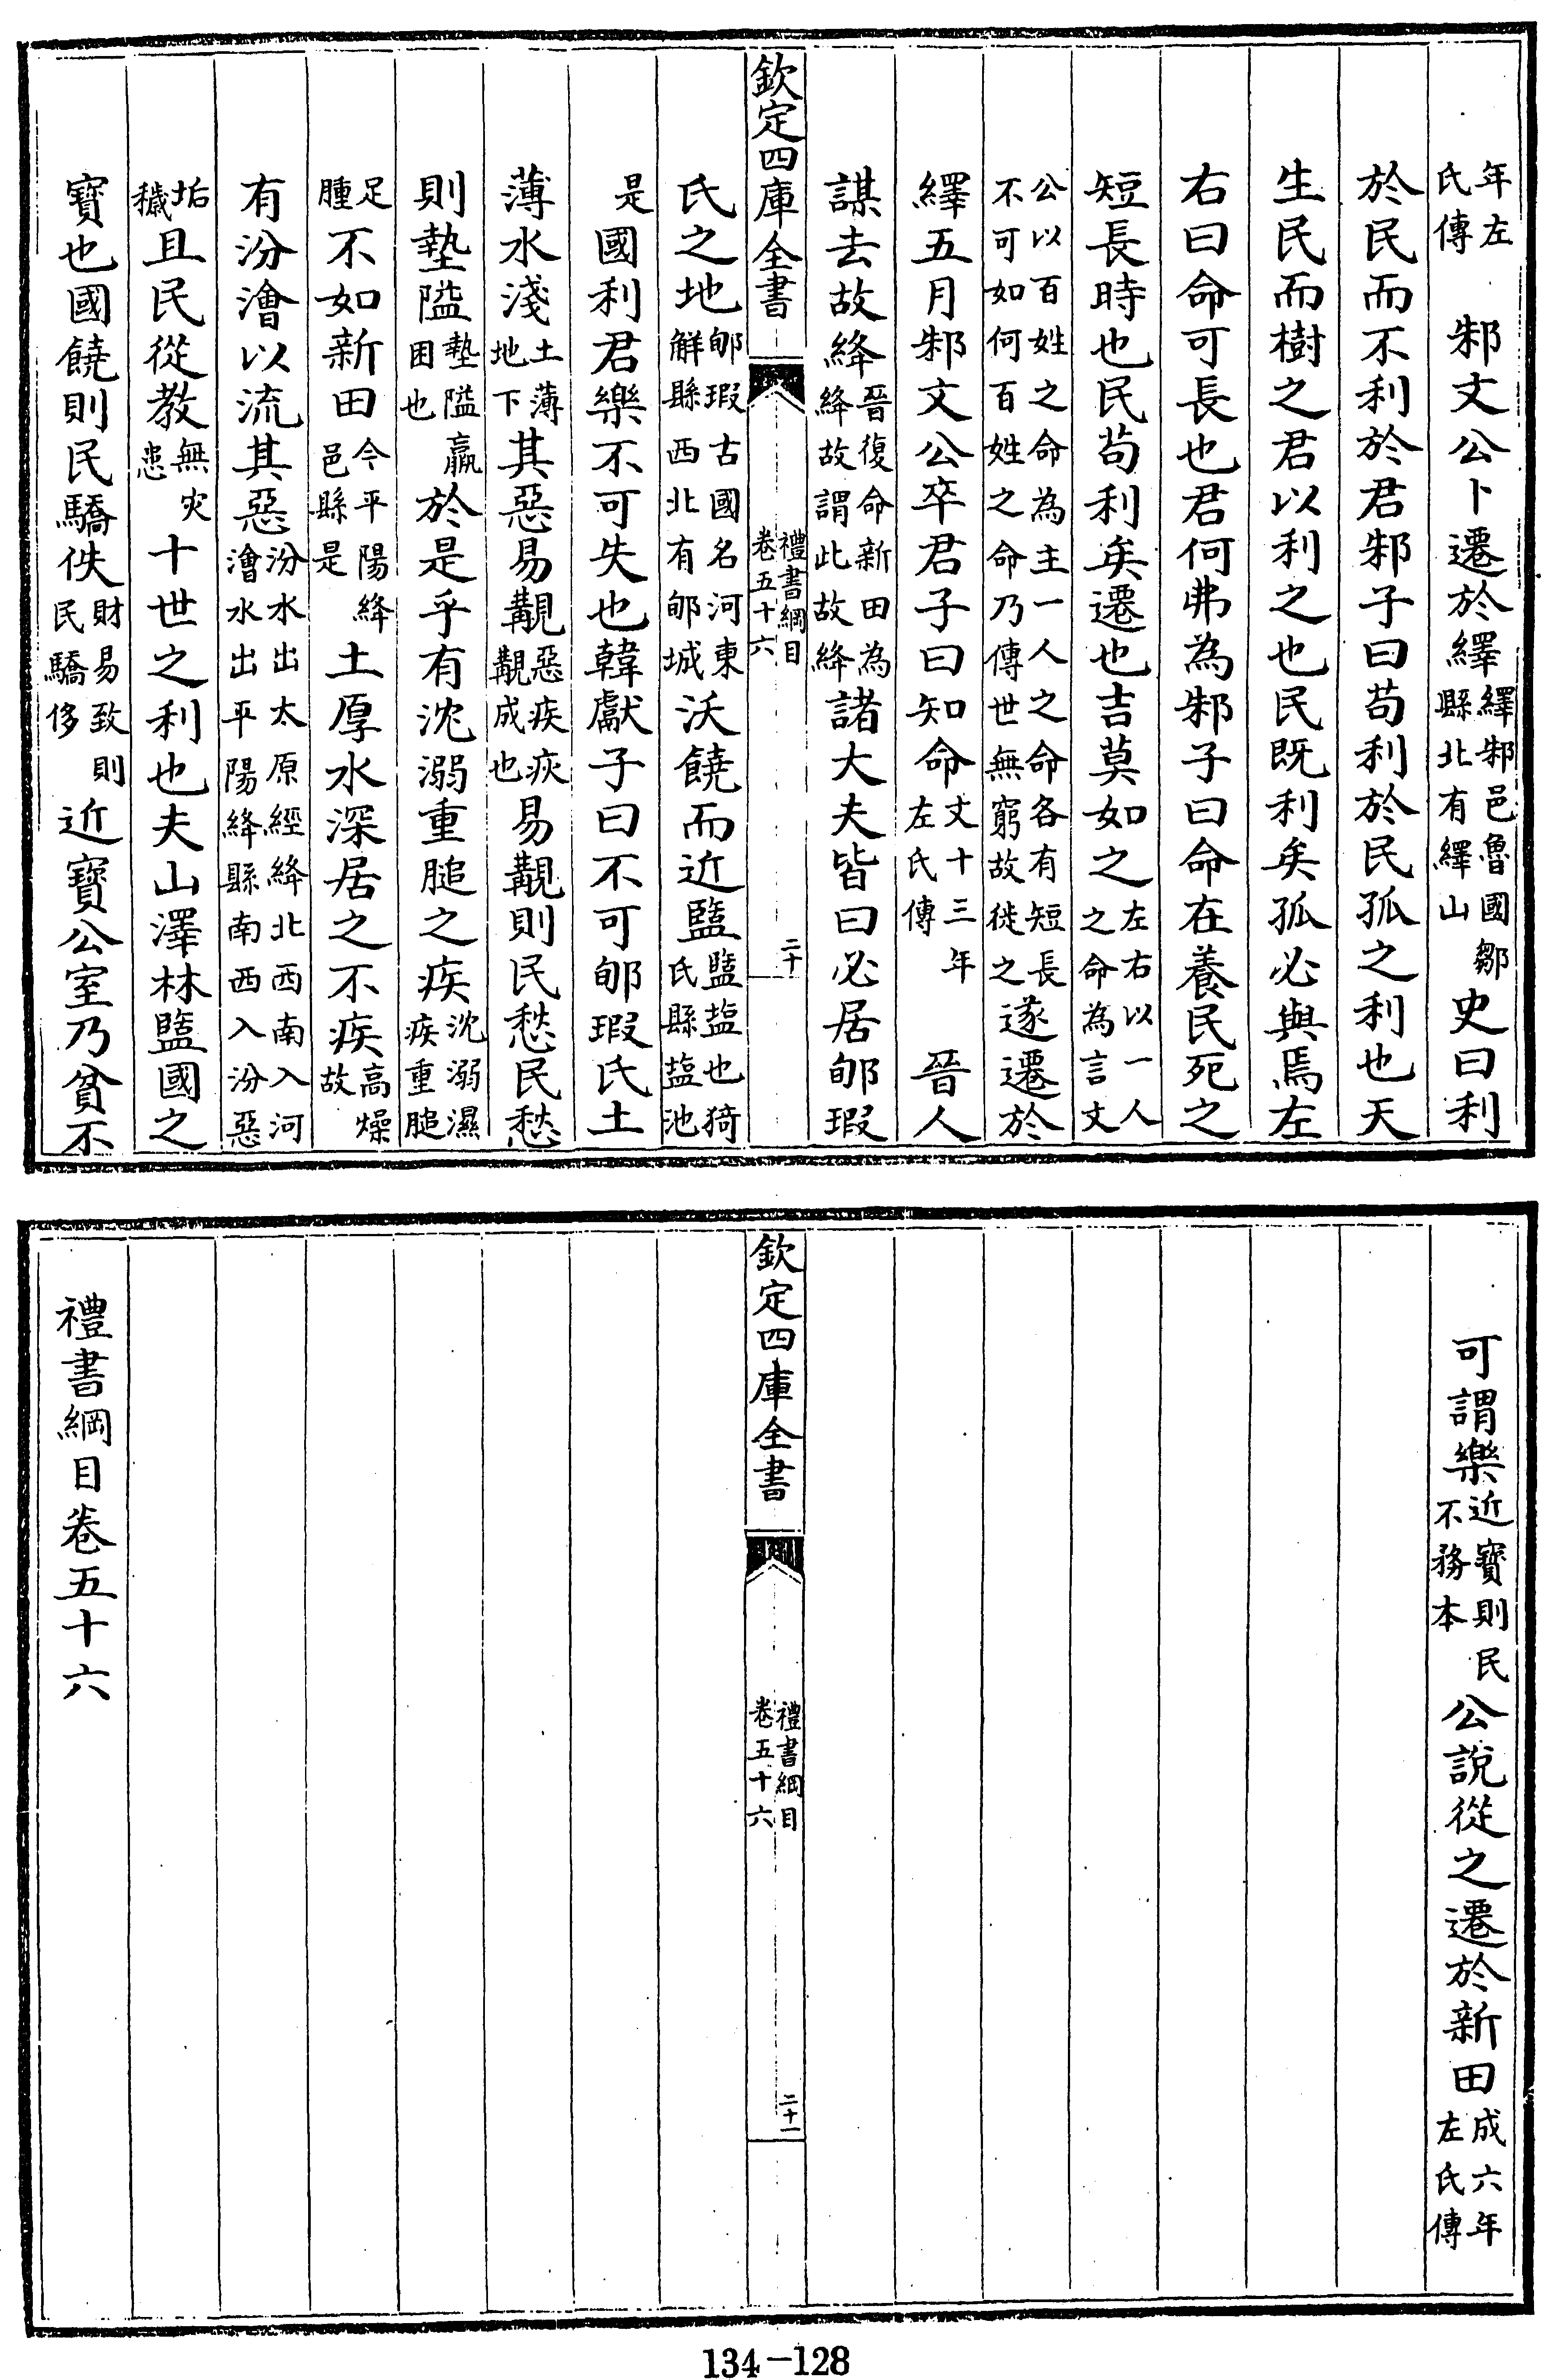 年左氏傳　邾文公卜遷於繹繹邾邑魯國鄒縣北有繹山史曰利
於民而不利於君邾子曰苟利於民孤之利也天
生民而樹之君以利之也民既利矣孤必與焉左
右曰命可長也君何弗為邾子曰命在養民死之
短長時也民苟利矣遷也吉莫如之左右以一人之命為言文
公以百姓之命為主一人之命各有短長不可如何百姓之命乃傳世無窮故徙之遂遷於
繹五月邾文公卒君子曰知命文十三年左氏傳　晉人
謀去故絳晉復命新田為絳故謂此故絳諸大夫皆曰必居郇瑕
欽定四庫全書　禮書綱目卷五十六　二十
氏之地郇瑕古國名河東解縣西北有郇城沃饒而近盬盬盐也猗氏縣盐池
是國利君樂不可失也韓獻子曰不可郇瑕氏土
薄水淺土薄地下其惡易覯惡疾疢覯成也易覯則民愁民愁
則墊隘墊隘羸困也於是乎有沈溺重膇之疾沈溺濕疾重膇
足腫不如新田今平陽絳邑縣是土厚水深居之不疾高燥故
有汾澮以流其惡汾水出太原經絳北西南入河澮水出平陽絳縣南西入汾惡
垢穢且民從教無灾患十世之利也夫山澤林盬國之
寶也國饒則民驕佚財易致則民驕侈近寶公室乃貧不
可謂樂近寶則民不務本公說從之遷於新田成六年左氏傳
欽定四庫全書　禮書綱目卷五十六　二十一
禮書綱目卷五十六
134-128